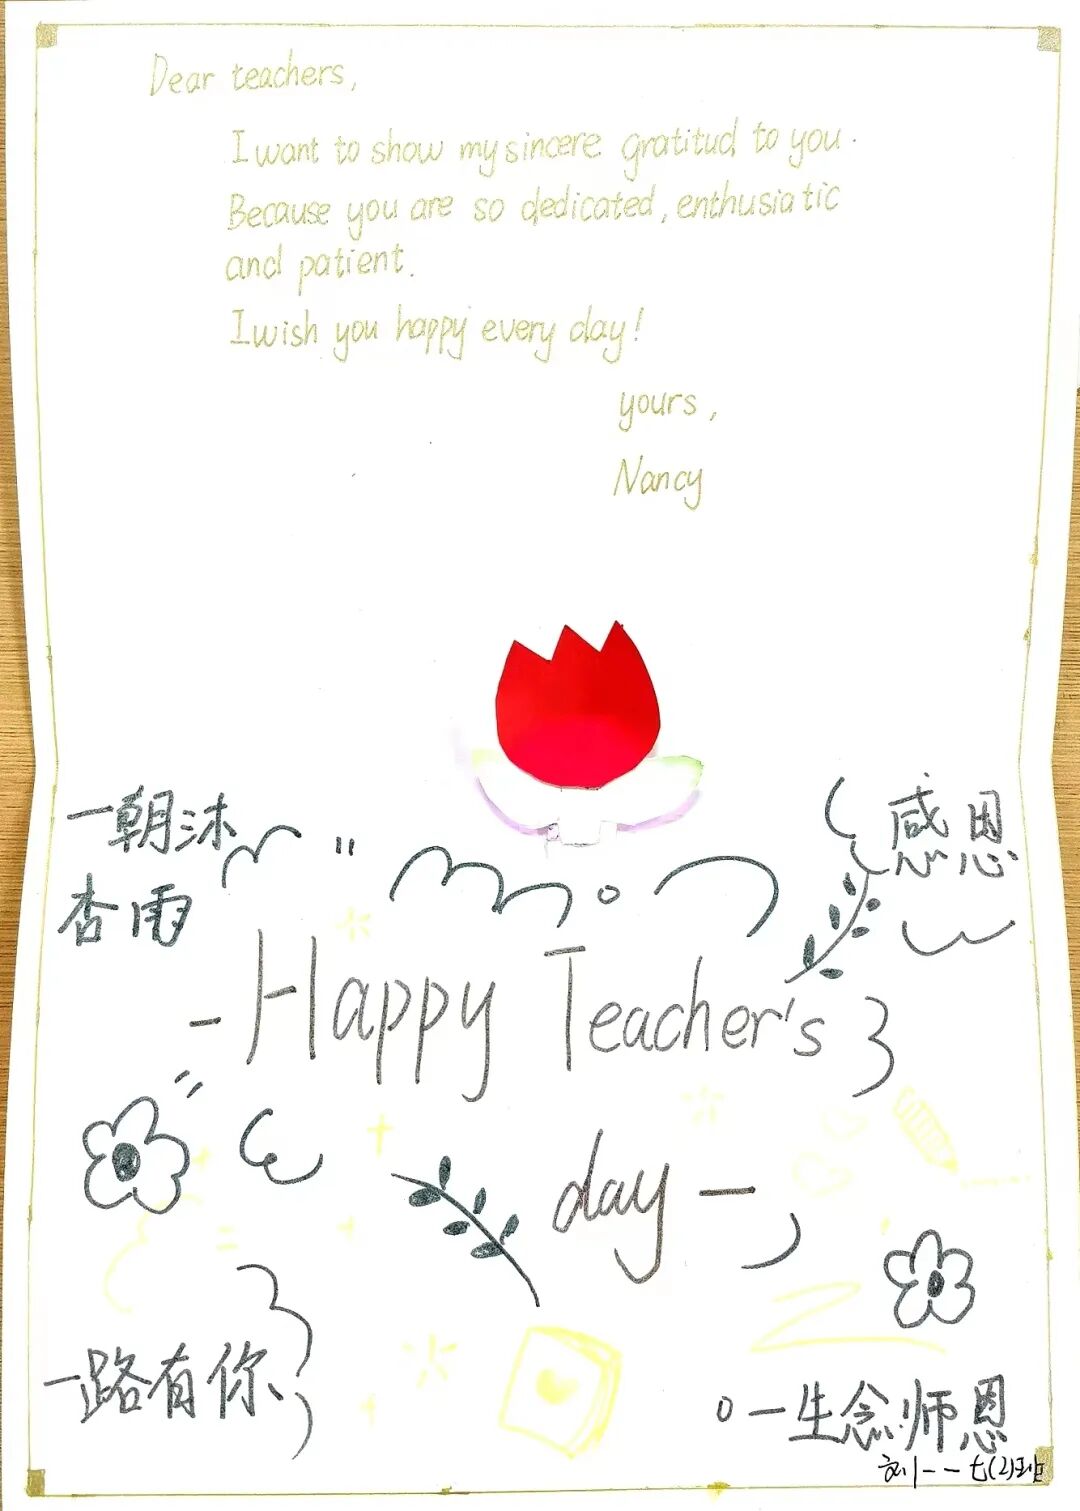 Dear teachers,
I want to show my sincere gratitud to you.
Because you are so dedicated, enthusiatic
and patient.
I wish you happy every day!
yours,
Nancy
一朝沐
杏雨
感恩
- Happy Teacher's
day -
一路有你
一生念师恩
刘一一七(2)班